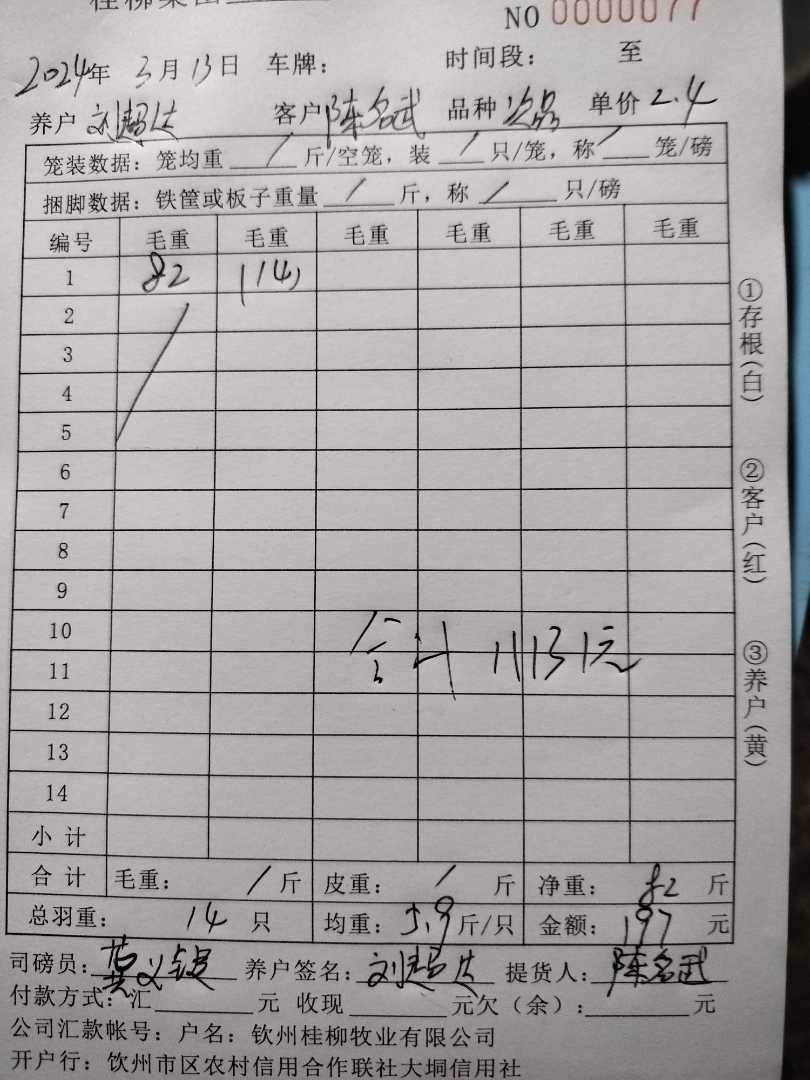 桂柳集团
NO 0000077
2024年 3月 13日 车牌： 时间段： 至
养户 刘超达 客户 陈名武 品种 次品 单价 2.4
笼装数据：笼均重 / 斤/空笼，装 / 只/笼，称 / 笼/磅
捆脚数据：铁筐或板子重量 / 斤，称 / 只/磅
编号 毛重 毛重 毛重 毛重 毛重 毛重
1 82 (14)
2
3
4
5
6
7
8
9
10
合计 11131元
11
12
13
14
小计
合计 毛重： / 斤 皮重： / 斤 净重： 82 斤
总羽重： 14 只 均重： 5.9 斤/只 金额： 197 元
司磅员： 养户签名：刘超达 提货人：陈名武
付款方式：汇 元 收现 元欠（余）： 元
公司汇款帐号：户名：钦州桂柳牧业有限公司
开户行：饮州市区农村信用合作联社大垌信用社
①存根(白)
②客户(红)
③养户(黄)